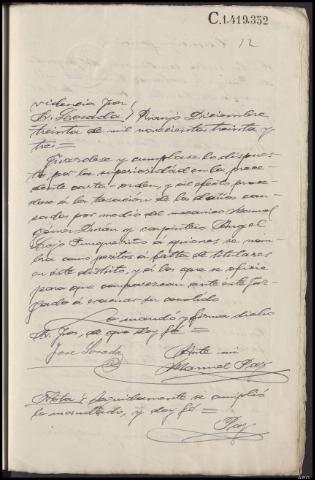 C.1.419.352
12
videncia Juez
Sr. Losada / Riaujo Diciembre
treinta de mil novecientos treinta y
tres =
Guardese y cumplase lo dispues-
to por la superioridad en la prece-
dente carta-orden, y al efecto proce-
dase á la tasacion de los daños cau-
sados por medio del mecanico Manuel
Gómez Duran y carpintero Angel
Rojo Junquerito á quienes se nom-
bra como peritos á falta de titulares
en este distrito, y á los que se oficie
para que comparezcan ante este Juz-
gado á evacuar su cometido
Lo mandó y firma dicho
Sr. Juez, de que doy fé =
Jose Losada
Ante mi
Manuel Paz
Nota: Seguidamente se cumplió
lo mandado, y doy fé =
Paz